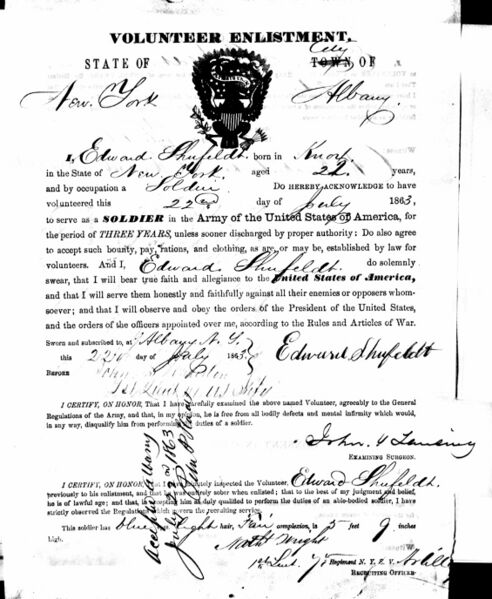 VOLUNTEER ENLISTMENT.
STATE OF City TOWN OF
New York Albany
I, Edward Shufeldt born in Knox
in the State of New York. aged 22 years,
and by occupation a Soldier DO HEREBY ACKNOWLEDGE to have
volunteered this 22nd day of July 1863,
to serve as a SOLDIER in the Army of the United States of America, for
the period of THREE YEARS, unless sooner discharged by proper authority: Do also agree
to accept such bounty, pay, rations, and clothing, as are or may be, established by law for
volunteers. And I, Edward Shufeldt. do solemnly
swear, that I will bear true faith and allegiance to the United States of America,
and that I will serve them honestly and faithfully against all their enemies or opposers whom-
soever; and that I will observe and obey the orders of the President of the United States,
and the orders of the officers appointed over me, according to the Rules and Articles of War.
Sworn and subscribed to, at Albany N.Y.
this 22d day of July 1863
Edward Shufeldt
BEFORE John
1st Lieut
I CERTIFY, ON HONOR, That I have carefully examined the above named Volunteer, agreeably to the General
Regulations of the Army, and that, in my opinion, he is free from all bodily defects and mental infirmity which would,
in any way, disqualify him from performing the duties of a soldier.
John V Lansing
EXAMINING SURGEON.
I CERTIFY, ON HONOR, That I have minutely inspected the Volunteer, Edward Shufeldt.
previously to his enlistment, and that he was entirely sober when enlisted; that to the best of my judgment and belief,
he is of lawful age; and that, in accepting him as duly qualified to perform the duties of an able-bodied soldier, I have
strictly observed the Regulations which govern the recruiting service.
This soldier has blue eyes, light hair, Fair complexion, is 5 feet 9 inches
high.
Wright
1st Lieut 75 Regiment N. Y. S. V. Artill
RECRUITING OFFICER
Albany
July 22nd 1863